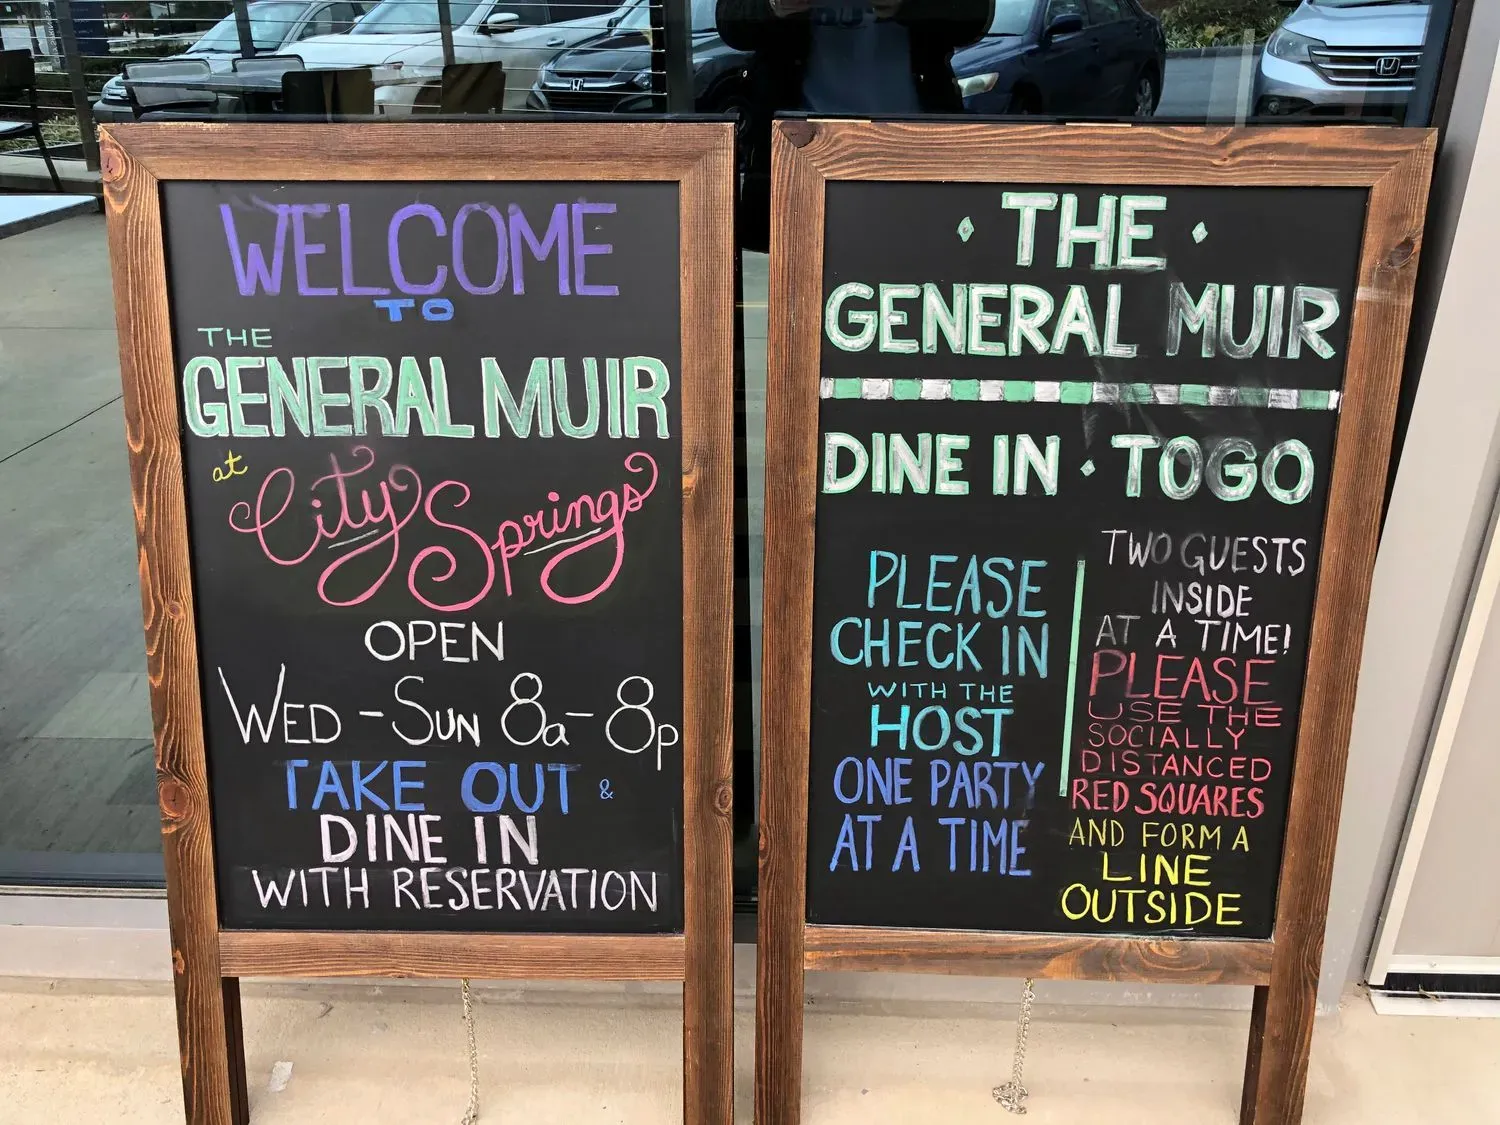 WELCOME
TO
THE
GENERAL MUIR
at
City Springs
OPEN
WED - SUN 8a - 8p
TAKE OUT &
DINE IN
WITH RESERVATION
· THE ·
GENERAL MUIR
DINE IN · TOGO
PLEASE
CHECK IN
WITH THE
HOST
ONE PARTY
AT A TIME
TWO GUESTS
INSIDE
AT A TIME!
PLEASE
USE THE
SOCIALLY
DISTANCED
RED SQUARES
AND FORM A
LINE
OUTSIDE